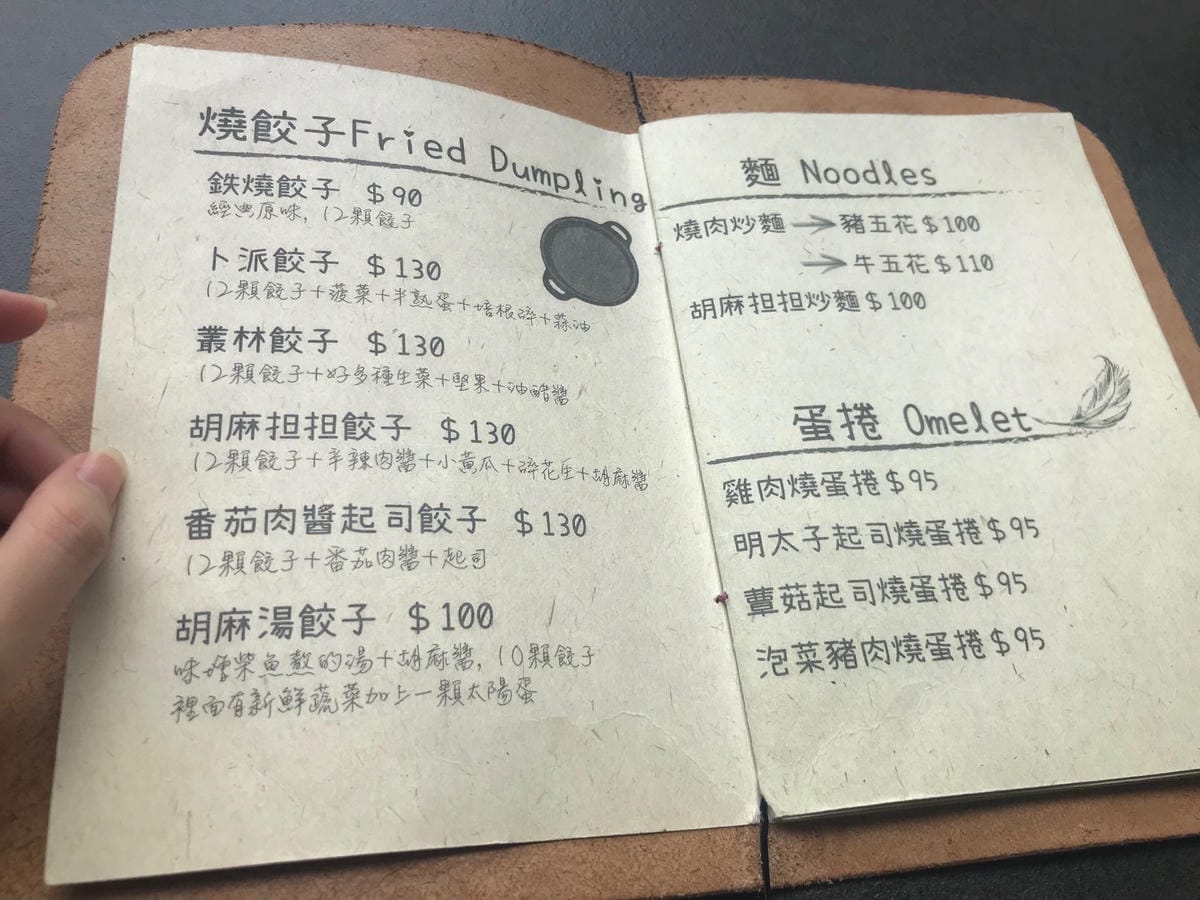 燒餃子Fried Dumpling
鉄燒餃子 $90
經典原味, 12顆餃子
卜派餃子 $130
12顆餃子+菠菜+半熟蛋+培根碎+蒜油
叢林餃子 $130
12顆餃子+好多種生菜+堅果+油醋醬
胡麻担担餃子 $130
12顆餃子+辛辣肉醬+小黃瓜+碎花生+胡麻醬
番茄肉醬起司餃子 $130
12顆餃子+番茄肉醬+起司
胡麻湯餃子 $100
味噌柴魚熬的湯+胡麻醬, 10顆餃子
裡面有新鮮蔬菜加上一顆太陽蛋
麵 Noodles
燒肉炒麵→豬五花$100
→牛五花$110
胡麻担担炒麵$100
蛋捲 Omelet
雞肉燒蛋捲$95
明太子起司燒蛋捲$95
蕈菇起司燒蛋捲$95
泡菜豬肉燒蛋捲$95